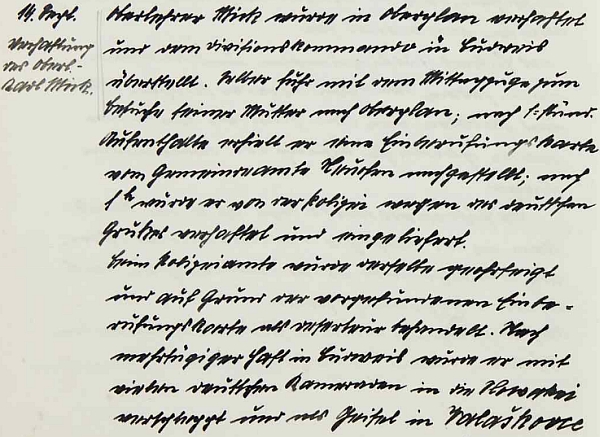 14. Sept.
Verhaftung
des Oberl.
Karl Mick.
Oberlehrer Mick wurde in Oberplan verhaftet
und dem Divisionskommando in Budweis
überstellt. Selber fuhr mit dem Mittagzuge zum
Besuche seiner Mutter nach Oberplan; nach 1-stünd.
Aufenthalte erhielt er eine Einberufungskarte
vom Gemeindeamte nachgestellt; nach
1h wurde er von der Polizei wegen des deutschen
Grußes verhaftet und eingeliefert.
Beim Polizeiamte wurde derselbe geohrfeigt
und auf Grund der vorgefundenen Einbe-
rufungskarte als Deserteur behandelt. Nach
mehrtägiger Haft in Budweis wurde er mit
vielen deutschen Kameraden in die Slowakei
verschleppt und als Geisel in Valaškovce